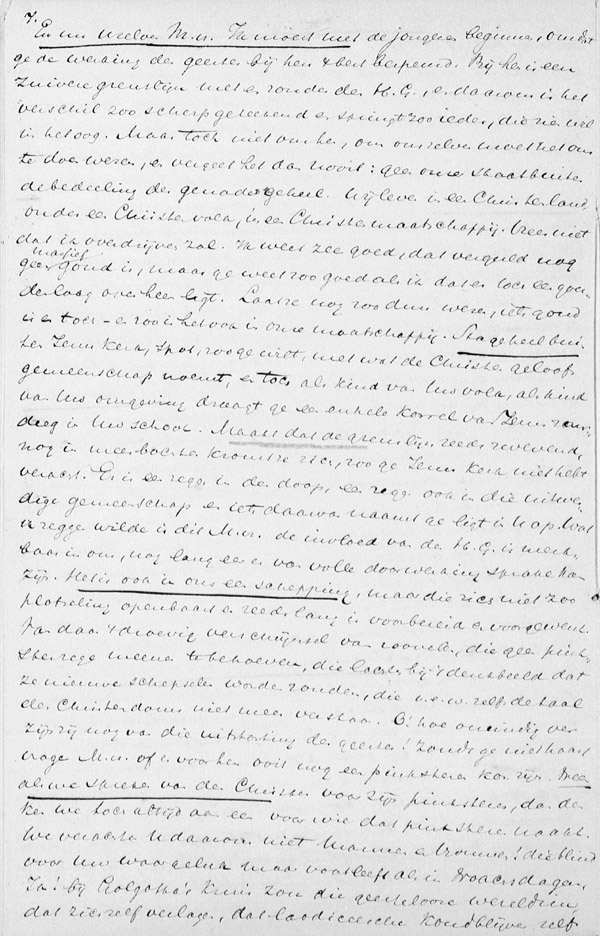 7.
En nu welve M.v. Ik moest met de jongeren beginnen, omdat
ge de werking des geestes bij hen 't best herkend. Bij hen is een
zuivere grenslijn met en zonder den H.G., en daarom is het
verschil zoo scherp geteekend en springt zoo ieder, die zien wil
in het oog. Maar toch niet om hen, om onszelven moet het ons
te doen wezen, en vergeet het dan nooit: geen onzer staat buiten
de bedeeling der genade geheel. Wij leven in een Christenland
onder een Christenvolk, in een Christenmaatschappij. Vrees niet
dat ik overdrijven zal. Ik weet zeer goed, dat verguld nog
geen massief goud is, maar ge weet zoo goed als ik dat er toch een gouden
laag over heen ligt. Laat ze nog zoo dun wezen, iets goud
is er toch - en zoo is het ook in onze maatschappij. Sta geheel buiten
Jezus Kerk, spot, zoo ge wilt, met wat de Christen geloofs
gemeenschap noemt, en toch als kind van Uw volk, als kind
van Uw omgeving draagt ge een enkele korrel van Jezus zuurdeeg
in Uw schoot. Maar dat de grenslijn reeds zwevend,
nog in meer bochten kromt zich, zoo ge Jezus Kerk niet hebt
veracht. Er is een zegen in den doop, een zegen ook in die uitwendige
gemeenschap en iets daarvan naamt ge ligt in U op. Wat
ik zeggen wilde is dit M.v. de invloed van den H.G. is merkbaar
in ons, nog lang eer er van volle doorwerking sprake kan
zijn. Het is ook in ons een schepping, maar die zich niet zoo
plotseling openbaart en reeds lang is voorbereid en voorgewerkt.
Van daar 't droevig verschijnsel van zoovelen, die geen pinksterzege
meenen te behoeven, die lachen bij 't denkbeeld dat
ze nieuwe schepselen worden zouden, die n.e.w. zelfs de taal
des Christendoms niet meer verstaan. O! hoe oneindig ver
zijn zij nog van die uitstorting des geestes! Zoudt ge niet haast
vragen M.v. of er voor hen ooit nog een pinksteren kan zijn. Neen
als we spreken van den Christen voor zijn pinksteren, dan denken
we toch altijd aan een voor wie dat pinksteren naakt.
We verachten U daarom niet Mannen en vrouwen! die blind
voor Uw waar geluk maar voortleeft als in Noachs dagen.
Ja! bij Golgotha's Kruis zou die geestelooze wereldzin
dat zichzelf verlagen, dat laodiceesche koudblijven zelf